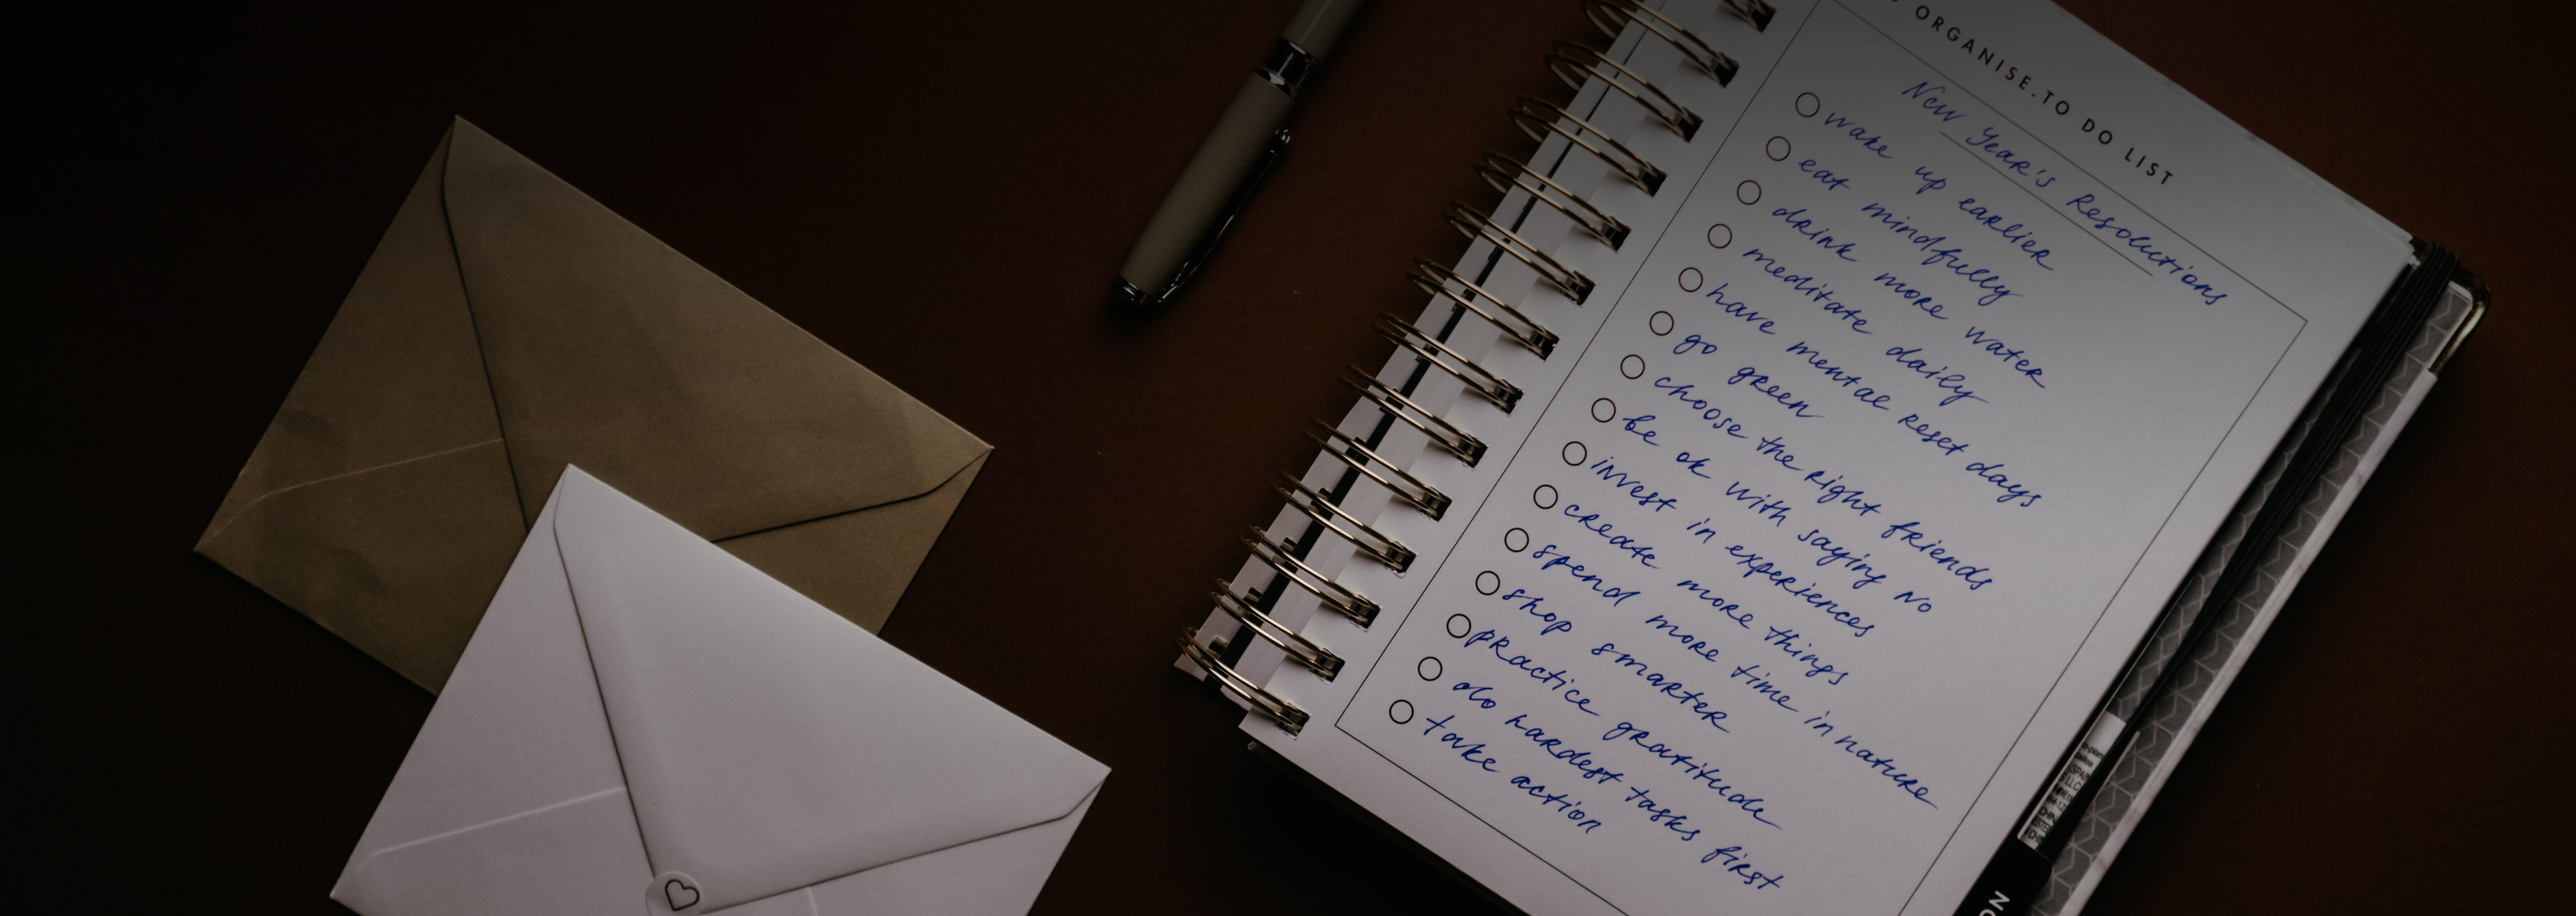 ORGANISE. TO DO LIST
New Year's Resolutions
wake up earlier
eat mindfully
drink more water
meditate daily
have mental reset days
go green
choose the right friends
be ok with saying no
invest in experiences
create more things
spend more time in nature
shop smarter
practice gratitude
do hardest tasks first
take action